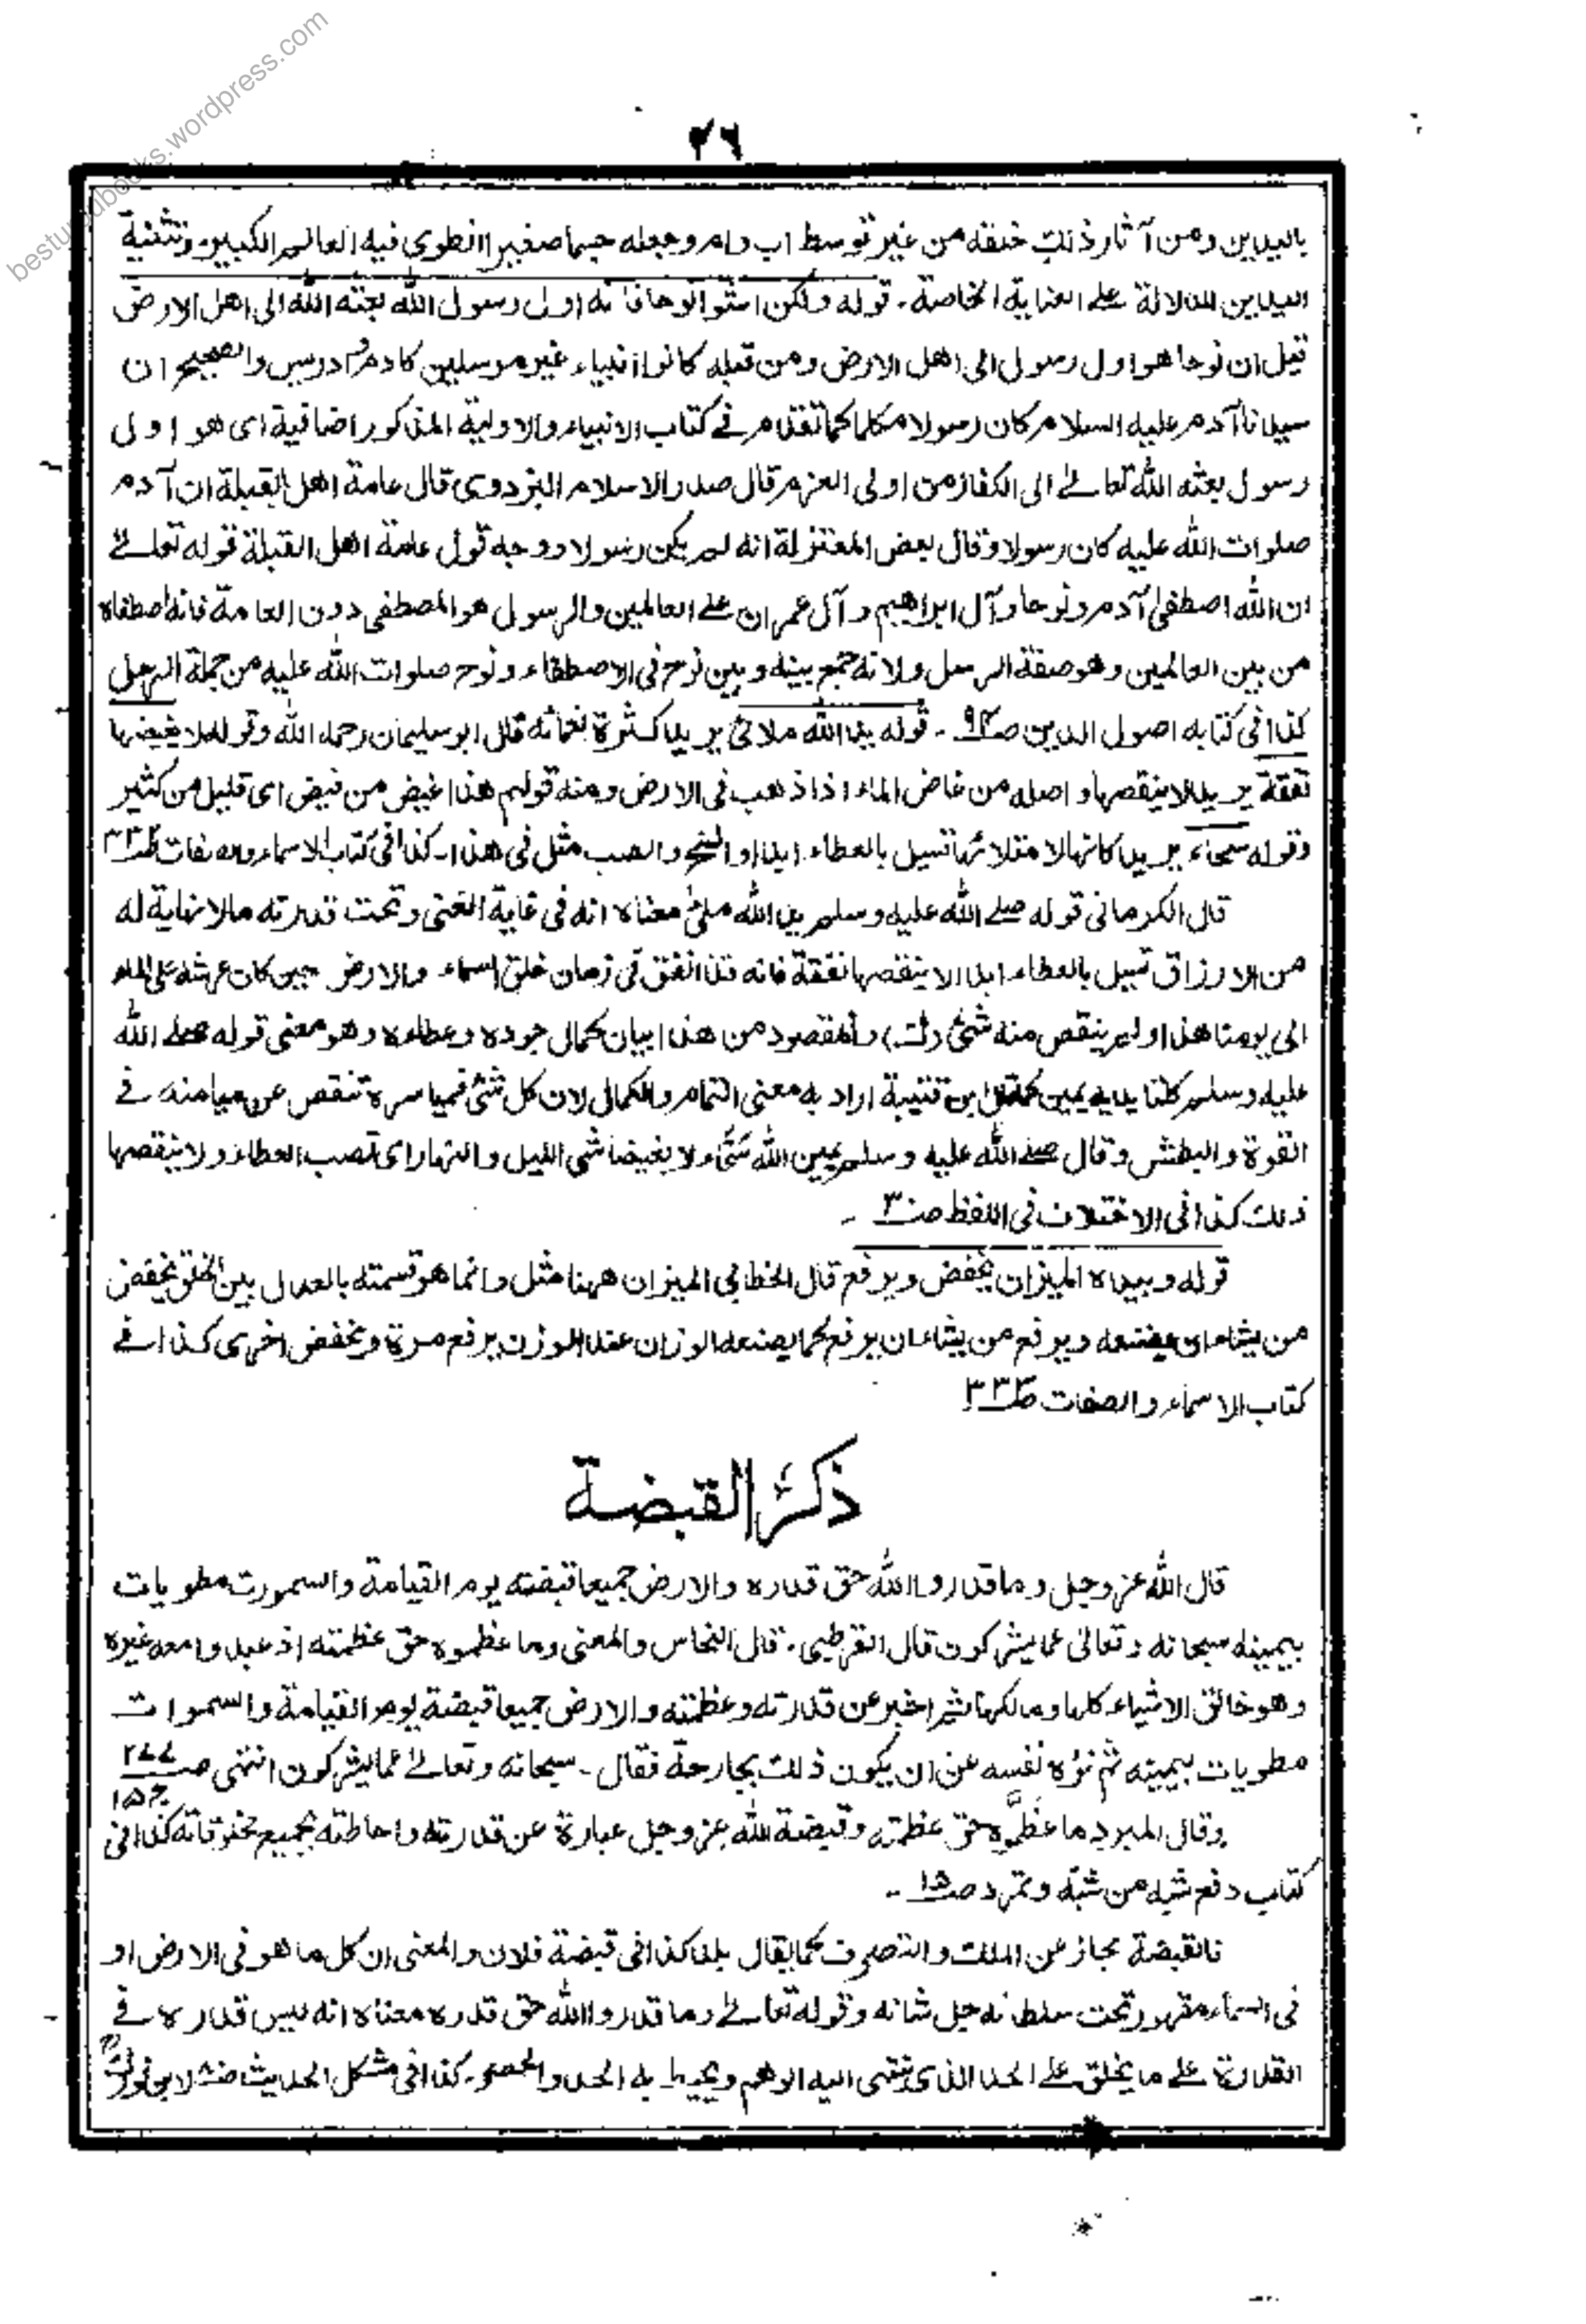 besturdubooks.wordpress.com
٢٦
باليدين ومن آثار ذلك خلقه من غير توسط اب وام وجعله جسما صغيرا انطوى فيه العالم الكبير وتثنية
اليدين للدلالة على العناية الخاصة۔ قوله ولكن ائتوا نوحا فانه اول رسول الله بعثه الله الى اهل الارض
قيل ان نوحا هو اول رسول الى اهل الارض ومن قبله كانوا انبياء غير مرسلين كادم وادريس والصحيح ان
سيدنا آدم عليه السلام كان رسولا مكلما كما تقدم في كتاب الانبياء والاولية المذكور اضافية اى هو اول
رسول بعثه الله تعالى الى الكفار من اولى العزم قال صدر الاسلام البزدوى قال عامة اهل القبلة ان آدم
صلوات الله عليه كان رسولا وقال بعض المعتزلة انه لم يكن رسولا ووجه قول عامة اهل القبلة قوله تعالى
ان الله اصطفى آدم ونوحا وآل ابراهيم وآل عمران على العالمين والرسول هو المصطفى دون العامة فانه اصطفاه
من بين العالمين وهو صفة الرسل ولانه جمع بينه وبين نوح في الاصطفاء ونوح صلوات الله عليه من جملة الرسل
كذا في كتابه اصول الدين صـ٩٢۔ قوله يد الله ملائ يريد كثرة نعمائه قال ابو سليمان رحمه الله وقوله لا يغيضها
نفقة يريد لا ينقصها واصله من غاض الماء اذا ذهب في الارض ومنه قولهم هذا غيض من فيض اى قليل من كثير
وقوله سحاء يريد كانها لامتلائها تسيل بالعطاء ابدا والسح والصب مثل في هذا۔ كذا في كتاب الاسماء والصفات صـ٣٣٢
قال الكرماني قوله صلى الله عليه وسلم يد الله ملئ معناه انه في غاية الغنى وتحت قدرته مالا نهاية له
من الارزاق تسيل بالعطاء ابدا لا ينقصها نفقة فانه قد انفق في زمان خلق السماء والارض حين كان عرشه على الماء
الى يومنا هذا ولم ينقص منه شئ (ك) والمقصود من هذا بيان كمال جوده وعطاءه وهو معنى قوله صلى الله
عليه وسلم كلتا يديه يمين كما قال ابن قتيبة اراد به معنى التمام والكمال لان كل شئ فمياسره تنقص عن ميامنه في
القوة والبطش وقال صلى الله عليه وسلم يمين الله سحّاء لا يغيضها شئ الليل والنهار اى تصب العطاء ولا ينقصها
ذلك كذا في الاختلاف في اللفظ صـ٣٠ ۔
قوله وبيده الميزان يخفض ويرفع قال الخطابي الميزان ههنا مثل وانما هو قسمته بالعدل بين الخلق يخفض
من يشاء ان يضعه ويرفع من يشاء ان يرفع كما يصنعه الوزان عند الوزن يرفع مرة ويخفض اخرى كذا في
كتاب الاسماء والصفات صـ٣٣٢
ذكر القبضة
قال الله عز وجل وما قدروا الله حق قدره والارض جميعا قبضته يوم القيامة والسموت مطويات
بيمينه سبحانه وتعالى عما يشركون قال القرطبي۔ قال النحاس والمعنى وما عظموه حق عظمته اذ عبدوا معه غيره
وهو خالق الاشياء كلها ومالكها ثم اخبر عن قدرته وعظمته والارض جميعا قبضته يوم القيامة والسموات
مطويات بيمينه ثم نزه نفسه عن ان يكون ذلك بجارحة فقال۔ سبحانه وتعالى عما يشركون انتهى صـ٢٧٧ ج١٥
وقال المبرد ما عظّموه حق عظمته وقبضة الله عز وجل عبارة عن قدرته واحاطته بجميع مخلوقاته كذا في
كتاب دفع شبه من شبّه وتمرد صـ١٥ ۔
فالقبضة مجاز عن الملك والتصرف كما يقال بلد كذا في قبضة فلان والمعنى ان كل ما هو في الارض او
في السماء مقهور تحت سلطانه جل شانه وقوله تعالى وما قدروا الله حق قدره معناه انه ليس قدره في
القدرة على ما يخلق على الحد الذى ينتهى اليه الوهم ويحيط به الحد والحصر۔ كذا في مشكل الحديث لابن فورك